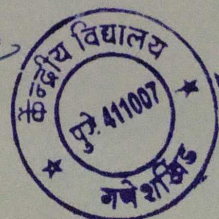 केन्द्रीय विद्यालय
पुणे. 411007
गणेशखिंड